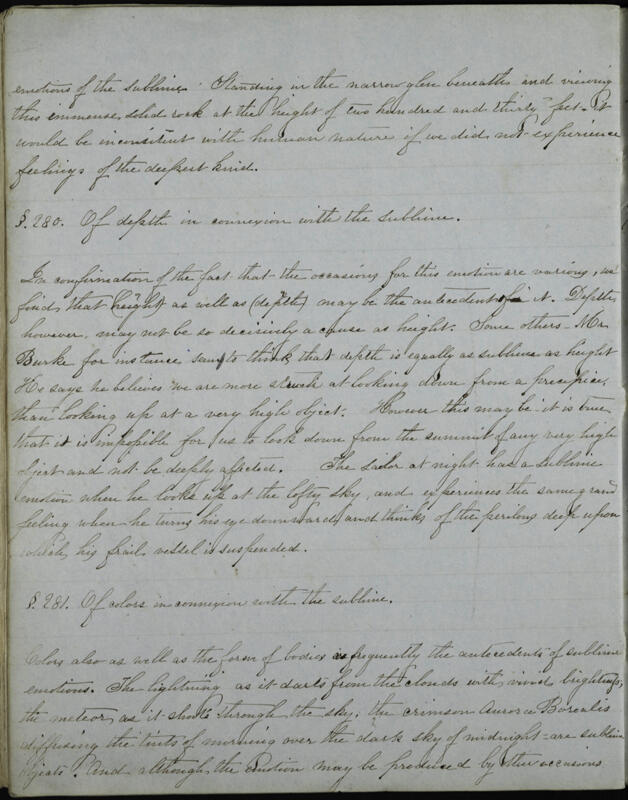 emotions of the sublime. Standing in the narrow glen beneath and viewing
this immense solid rock at the height of two hundred and thirty feet. It
would be inconsitent with human nature if we did not experience
feelings of the deepest kind.
§. 280. Of depth in connexion with the sublime.
In confirmation of the fact that the occasions for this emotion are various, we
find, that (height) as well as (depth) may be the antecedent of it. Depth,
however, may not be so decisively a cause as height. Some others - Mr.
Burke for instance seems to think that depth is equally as sublime as height
He says he believes "we are more struck at looking down from a precipice,
than" looking up at a very high object. However this may be - it is true
that it is impossible for us to look down from the summit of any very high
object and not be deeply affected. The sailor at night has a sublime
emotion when he looks up at the lofty sky, and experiences the same grand
feeling when he turns his eye downward, and thinks of the perilous deep upon
which, his frail vessel is suspended.
§. 281. Of colors in connexion with the sublime.
Colors also as well as the form of bodies is frequently the antecedents of sublime
emotions. The lightning as it darts from the clouds with vivid brightness;
the meteor, as it shoots through the sky; the crimson Aurora Borealis
diffusing the tints of morning over the dark sky of midnight - are sublime
objects. And although the emotion may be produced by other occasions